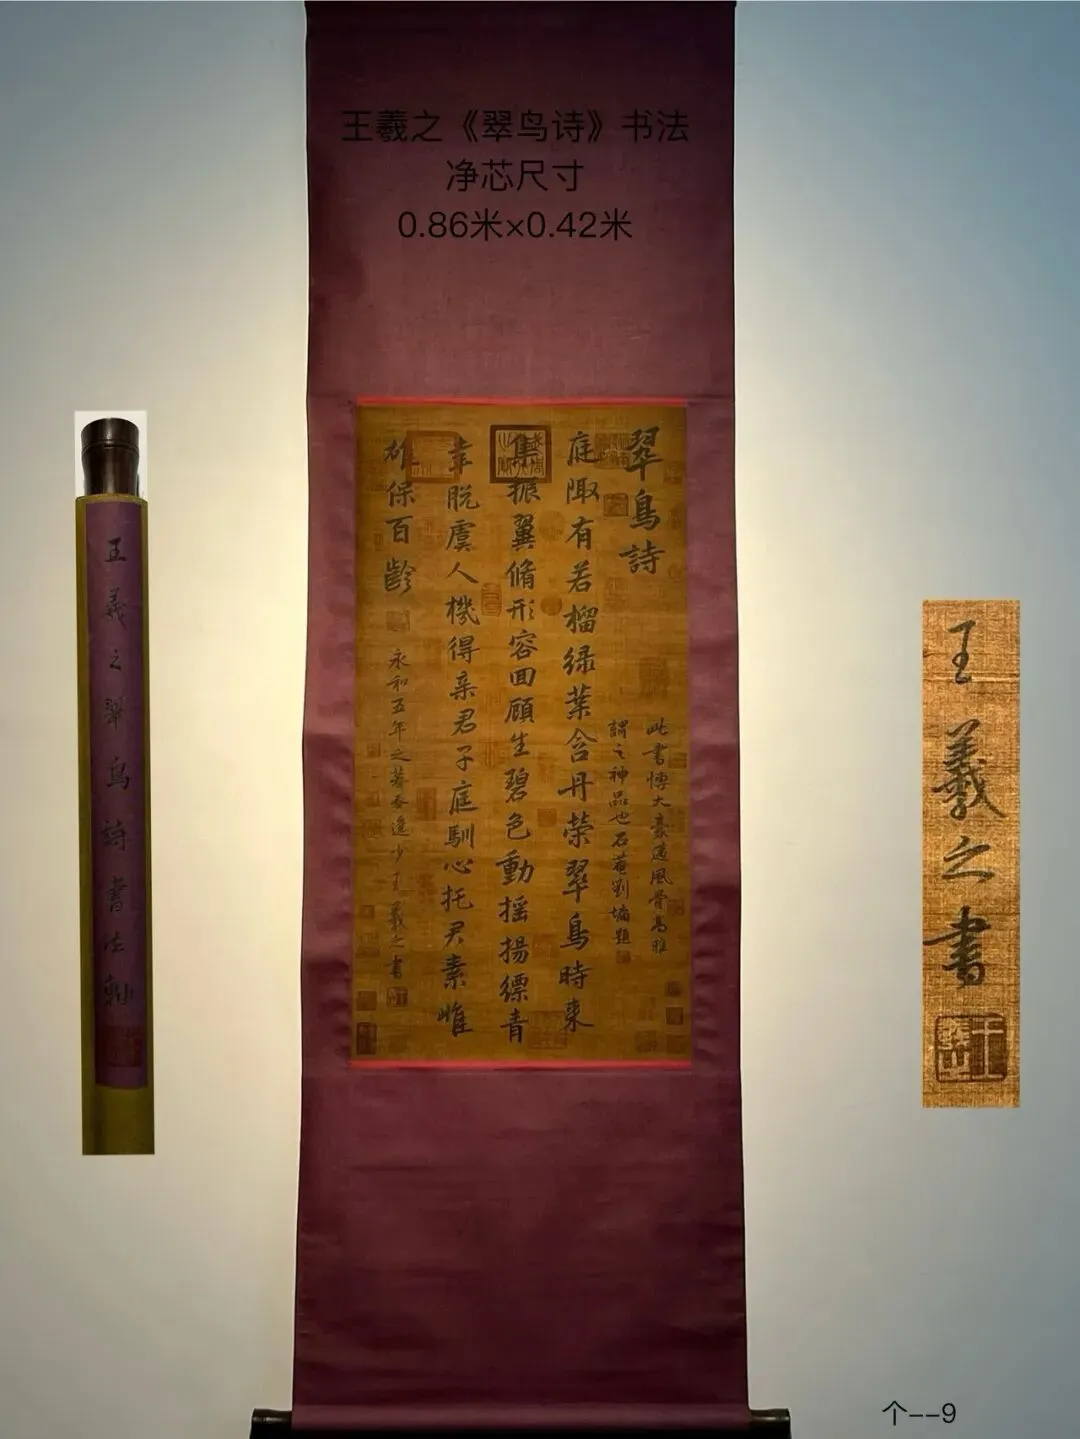 王羲之《翠鸟诗》书法
净芯尺寸
0.86米×0.42米
翠鳥詩
此書博大豪邁風骨高雅
謂之神品也石菴劉墉題
庭陬有若榴綠葉含丹榮翠鳥時來
集振翼脩形容回顧生碧色動搖揚縹青
幸脫虞人機得亲君子庭馴心托君素雌
雄保百齡
永和五年之暮春逸少王羲之書
王羲之翠鳥詩書法軸
王羲之書
个--9